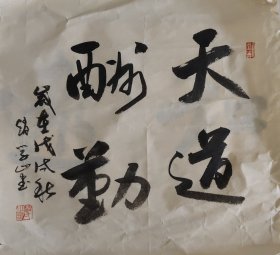 天道
酬勤
岁在戊戌秋